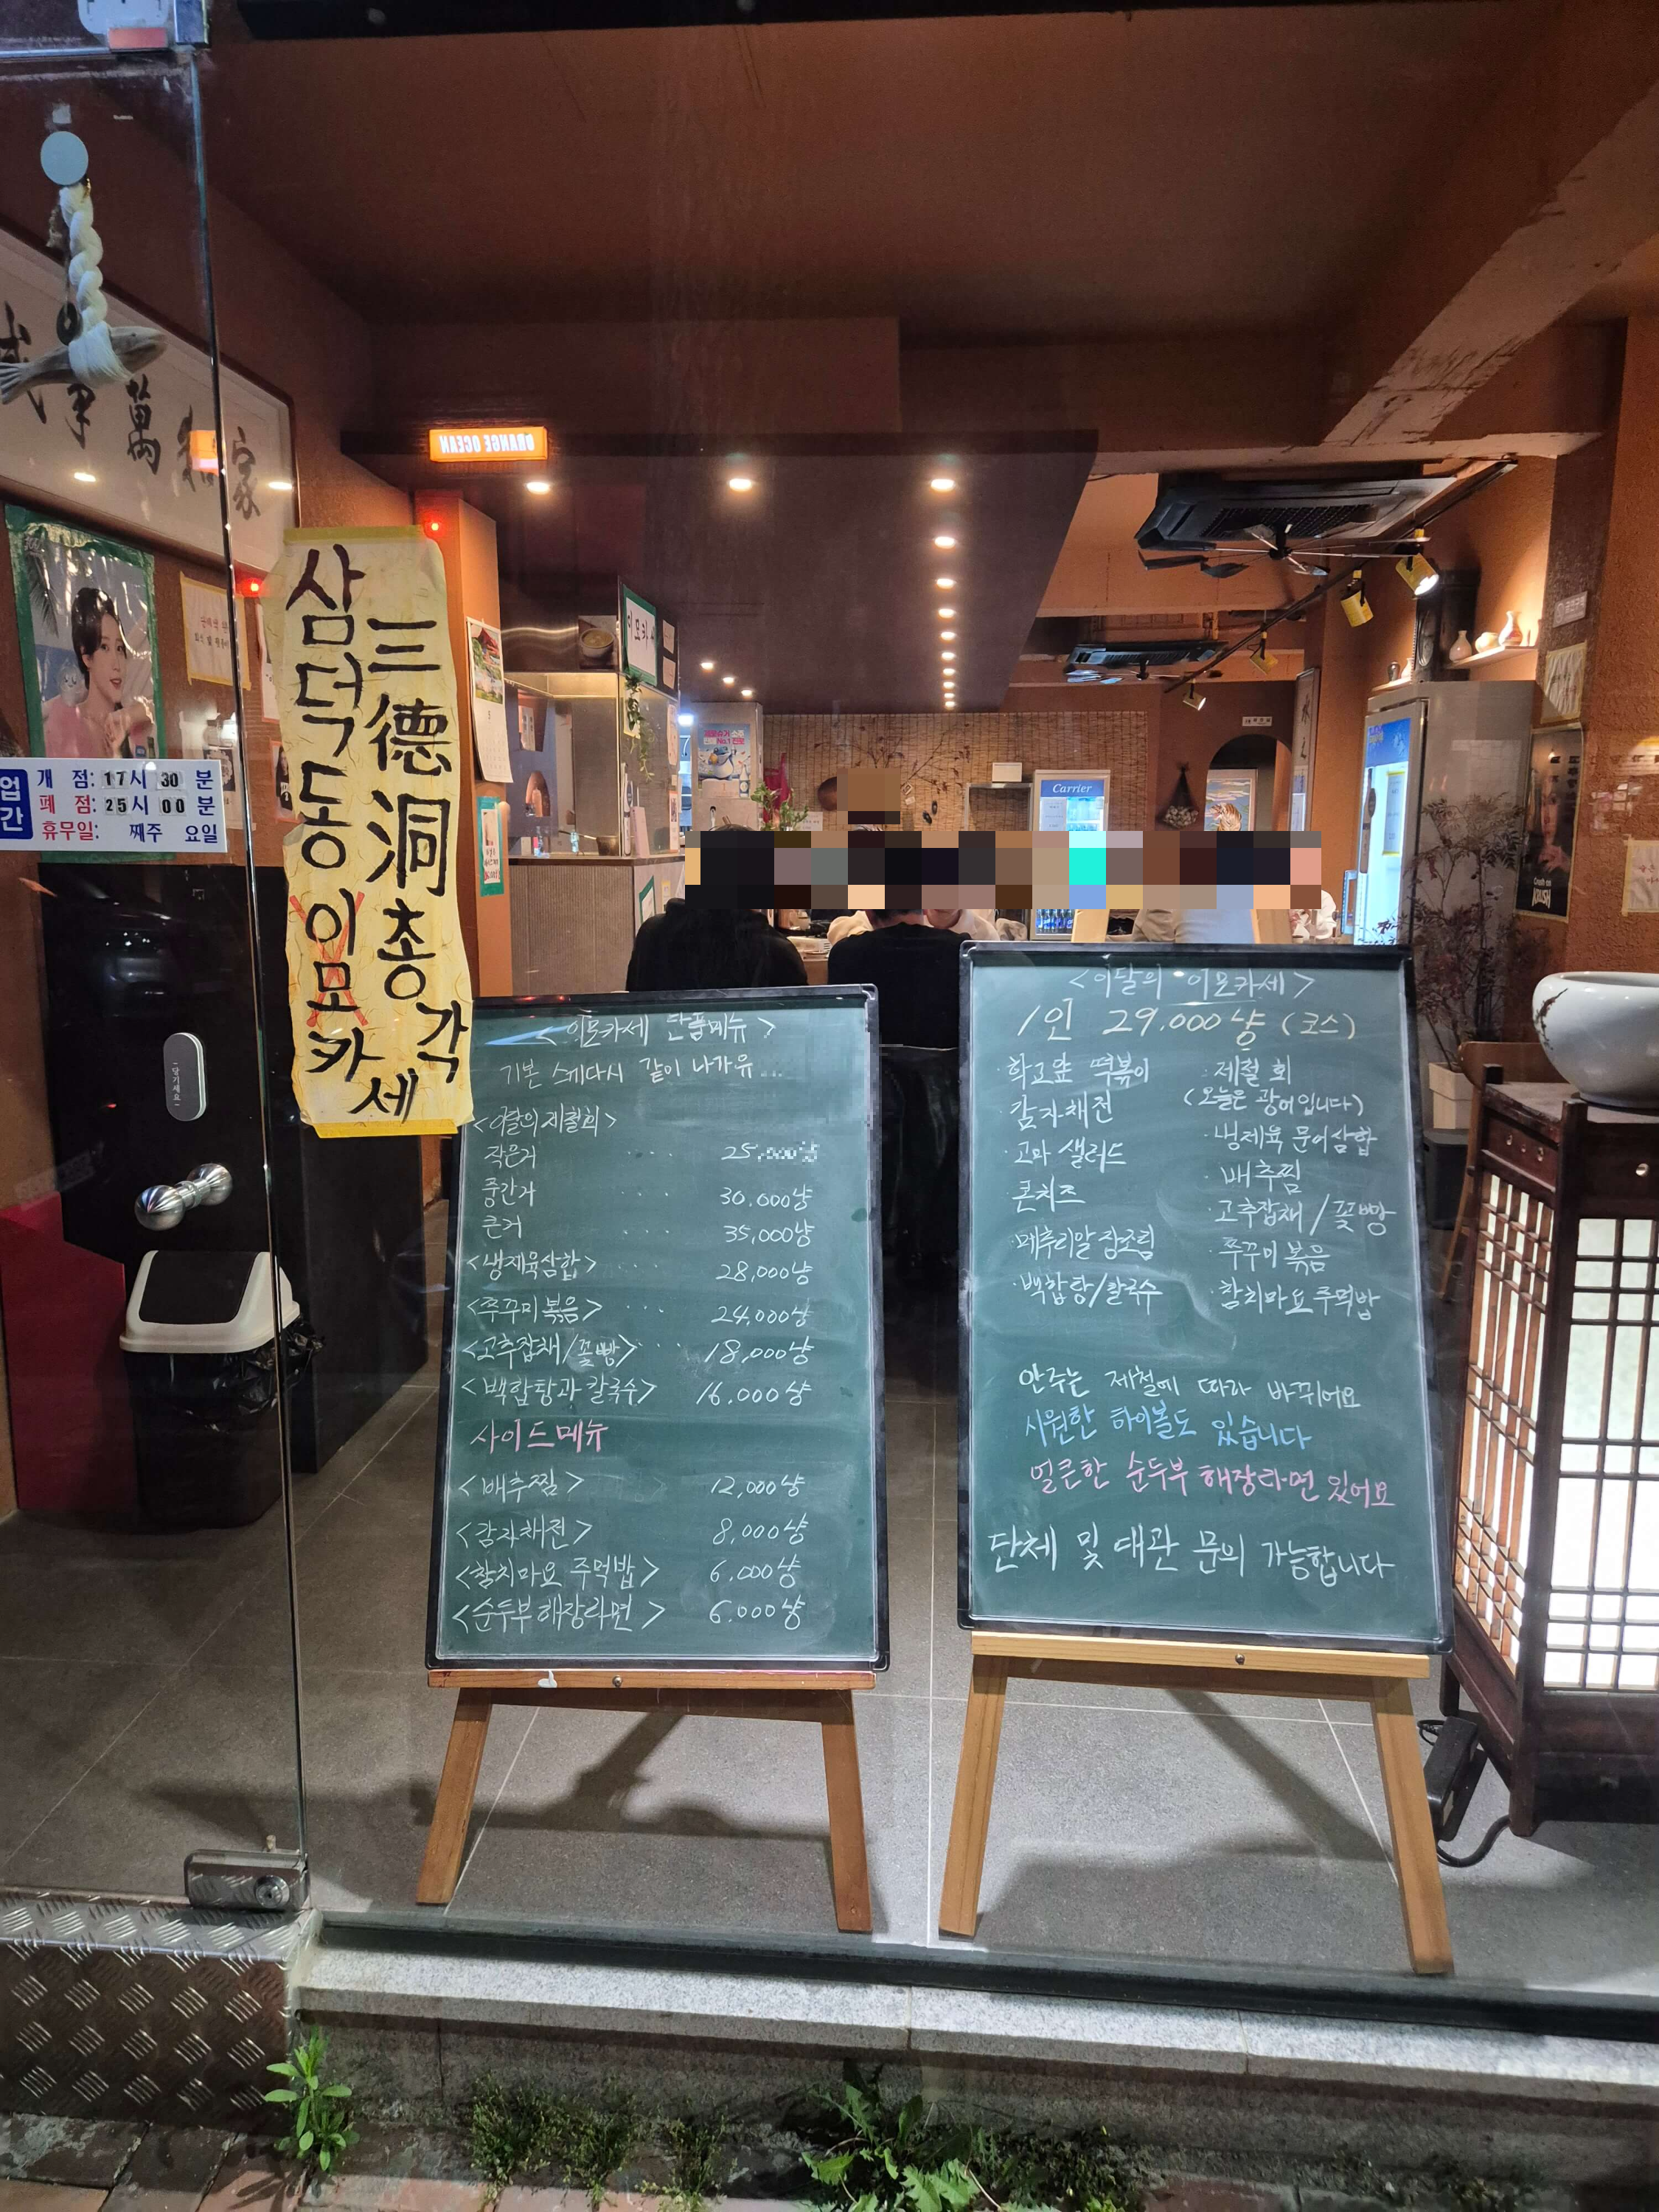 ORANGE OCEAN
삼덕동이모카세
三德洞총각
이모카
Carrier
업
간
개 점: 17시 30분
폐 점: 25시 00분
휴무일: 째주 요일
당기세요
萬
家
KRUSH
<이모카세 단품메뉴>
기본 스끼다시 같이 나가유...
<이달의 제철회>
작은거 .... 25,000냥
중간거 .... 30.000냥
큰거 .... 35,000냥
<냉제육삼합> 28,000냥
<쭈꾸미볶음> .... 24,000냥
<고추잡채/꽃빵> ... 18,000냥
<백합탕과 칼국수> 16.000냥
사이드메뉴
<배추찜> 12,000냥
<감자채전> 8,000냥
<참치마요 주먹밥> 6.000냥
<순두부해장라면> 6.000냥
<이달의 이모카세>
1인 29.000냥 (코스)
·학교앞 떡볶이
·감자채전
·고마 샐러드
·콘치즈
·메추리알장조림
·백합탕/칼국수
·제철회
(오늘은 광어입니다)
·냉제육 문어삼합
·배추찜
·고추잡채/꽃빵
·쭈꾸미볶음
·참치마요주먹밥
안주는 제철에 따라 바뀌어요
시원한 하이볼도 있습니다
얼큰한 순두부해장라면 있어요
단체 및 대관 문의 가능합니다